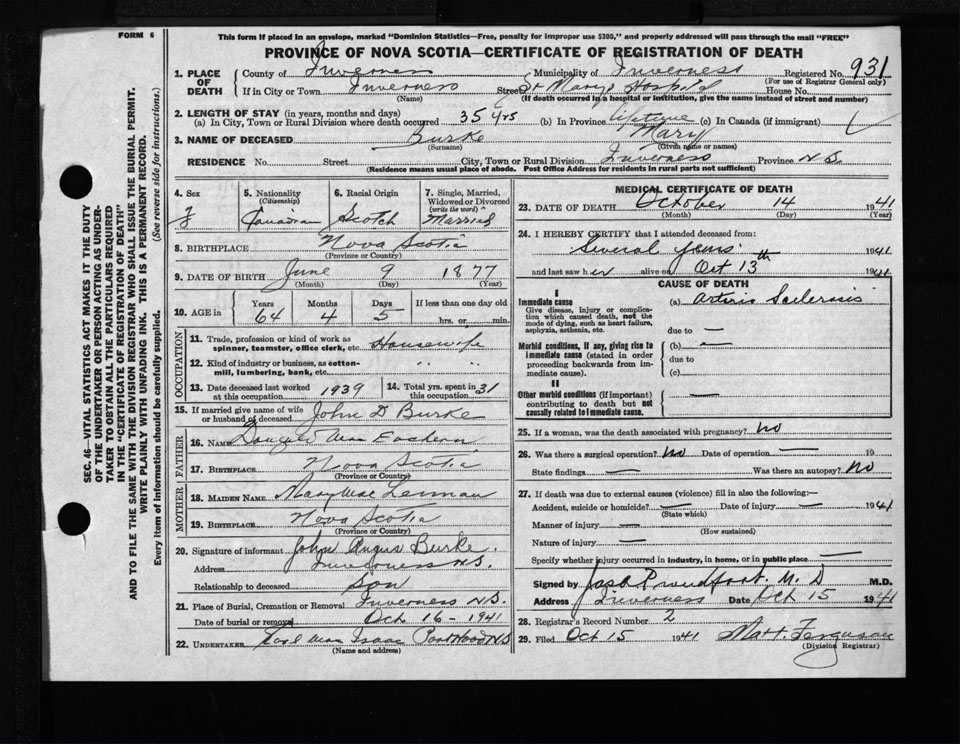 FORM 6
This form if placed in an envelope, marked "Dominion Statistics—Free, penalty for improper use $300," and properly addressed will pass through the mail "FREE"
PROVINCE OF NOVA SCOTIA—CERTIFICATE OF REGISTRATION OF DEATH
1. PLACE OF DEATH { County of Inverness Municipality of Inverness Registered No. 931
(For use of Registrar General only)
If in City or Town Inverness Street St Marys Hospital House No.
(Name) (If death occurred in a hospital or institution, give the name instead of street and number)
2. LENGTH OF STAY (in years, months and days)
(a) In City, Town or Rural Division where death occurred 35 yrs (b) In Province lifetime (c) In Canada (if immigrant)
3. NAME OF DECEASED Burke Mary
(Surname) (Given name or names)
RESIDENCE No. Street City, Town or Rural Division Inverness Province N.S.
(Residence means usual place of abode. Post Office Address for residents in rural parts not sufficient)
4. Sex F
5. Nationality (Citizenship) Canadian
6. Racial Origin Scotch
7. Single, Married, Widowed or Divorced (write the word) Married
8. BIRTHPLACE Nova Scotia
(Province or Country)
9. DATE OF BIRTH June 9 1877
(Month) (Day) (Year)
10. AGE in { Years 64 Months 4 Days 5 If less than one day old hrs. or min.
OCCUPATION
11. Trade, profession or kind of work as spinner, teamster, office clerk, etc. Housewife
12. Kind of industry or business, as cotton-mill, lumbering, bank, etc. " "
13. Date deceased last worked at this occupation 1939 14. Total yrs. spent in this occupation 31
15. If married give name of wife or husband of deceased John D Burke
FATHER
16. NAME Mac Eachern
17. BIRTHPLACE Nova Scotia
(Province or Country)
MOTHER
18. MAIDEN NAME Mary Mac Lennan
19. BIRTHPLACE Nova Scotia
(Province or Country)
20. Signature of informant John Angus Burke.
Address Inverness N.S.
Relationship to deceased Son
21. Place of Burial, Cremation or Removal Inverness N.S.
Date of burial or removal Oct 16 - 1941
22. UNDERTAKER Mac Isaac Port Hood N.S
(Name and address)
MEDICAL CERTIFICATE OF DEATH
23. DATE OF DEATH October 14 1941
(Month) (Day) (Year)
24. I HEREBY CERTIFY that I attended deceased from:
Several years 1941
and last saw her alive on Oct 13th 1941
CAUSE OF DEATH
I
Immediate cause (a) Arterio Sclerosis
Give disease, injury or complication which caused death, not the mode of dying, such as heart failure, asphyxia, asthenia, etc.
due to —
Morbid conditions, if any, giving rise to immediate cause (stated in order proceeding backwards from immediate cause). (b) —
due to
(c)
II
Other morbid conditions (if important) contributing to death but not causally related to immediate cause. —
25. If a woman, was the death associated with pregnancy? No
26. Was there a surgical operation? No Date of operation — 19
State findings — Was there an autopsy? No
27. If death was due to external causes (violence) fill in also the following:—
Accident, suicide or homicide? — Date of injury — 1941
(State which)
Manner of injury —
(How sustained)
Nature of injury —
Specify whether injury occurred in industry, in home, or in public place —
Signed by Jas A Proudfoot. M. D M.D.
Address Inverness Date Oct 15 1941
28. Registrar's Record Number 2
29. Filed Oct 15 1941 Matt. Ferguson
(Division Registrar)
SEC. 46—VITAL STATISTICS ACT MAKES IT THE DUTY
OF THE UNDERTAKER OR PERSON ACTING AS UNDER-
TAKER TO OBTAIN ALL THE PARTICULARS REQUIRED
IN THE "CERTIFICATE OF REGISTRATION OF DEATH"
AND TO FILE THE SAME WITH THE DIVISION REGISTRAR WHO SHALL ISSUE THE BURIAL PERMIT.
WRITE PLAINLY WITH UNFADING INK. THIS IS A PERMANENT RECORD.
Every item of information should be carefully supplied. (See reverse side for instructions.)